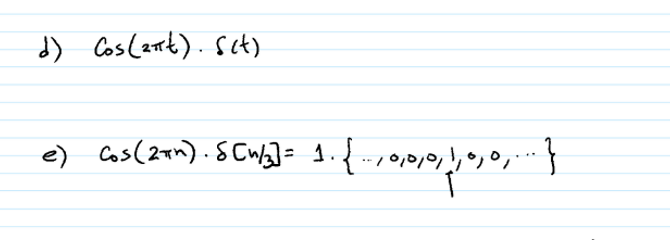 d) Cos(2πt) · δ(t)
e) Cos(2πn) · δ[n/3] = 1 · { .., 0, 0, 0, 1, 0, 0, ... }
↑